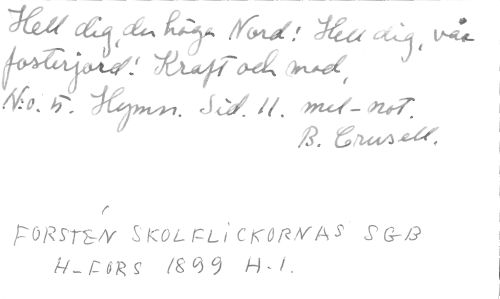 Hell dig, du höga Nord! Hell dig, vår
fosterjord! Kraft och mod,
N:o. 5. Hymn. Sid. 11. mel-not.
B. Crusell.
FORSTÉN SKOLFLICKORNAS SGB
H-FORS 1899 H.1.